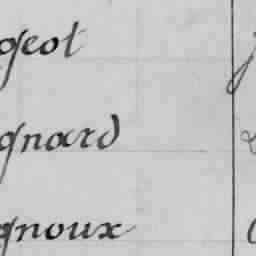 geot
gnard
gnoux